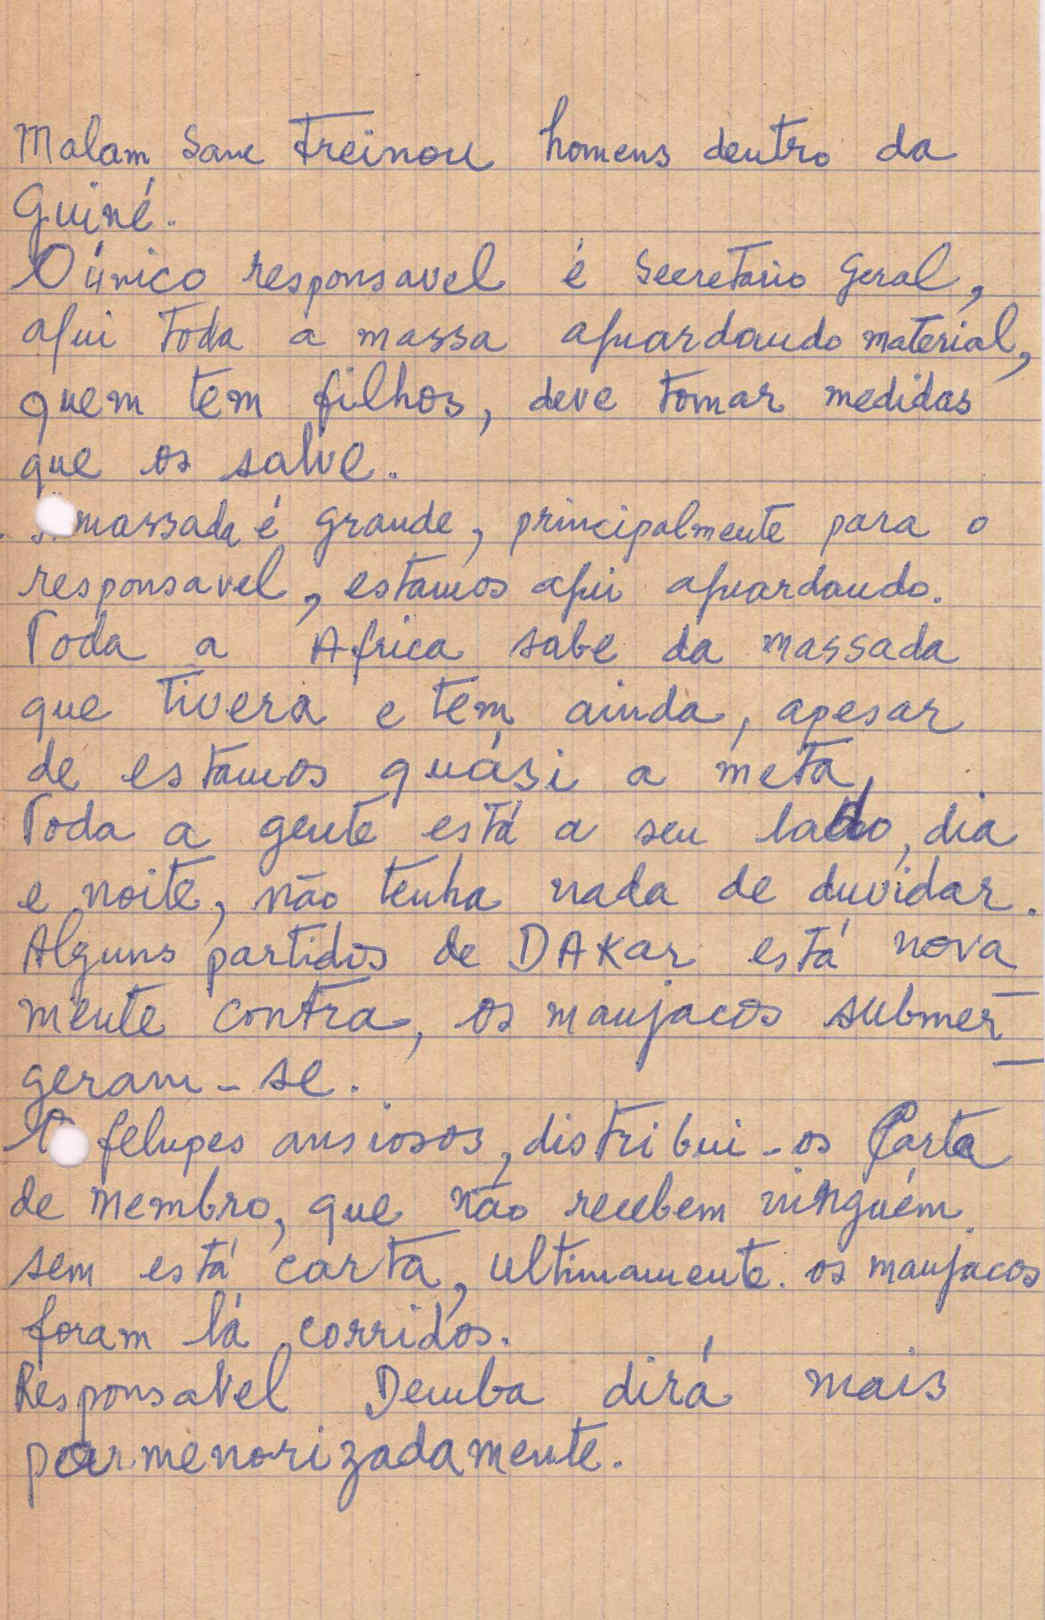 Malam Sane treinou homens dentro da
Guiné.
O único responsavel é Secretario Geral,
aqui toda a massa aguardando material,
quem tem filhos, deve tomar medidas
que os salve.
massada é grande, principalmente para o
responsavel, estamos aqui aguardando.
Toda a Africa sabe da massada
que tivera e tem ainda, apesar
de estamos quási a meta,
Toda a gente está a seu lado, dia
e noite, não tenha nada de duvidar.
Alguns partidos de DAKar está nova
mente contra, os manjacos submer
geram-se.
felupes ansiosos, distribui-os Carta
de membro, que não recebem ninguém
sem está carta, ultimamente. os manjacos
foram lá corridos.
Responsavel Demba dirá mais
pormenorizadamente.